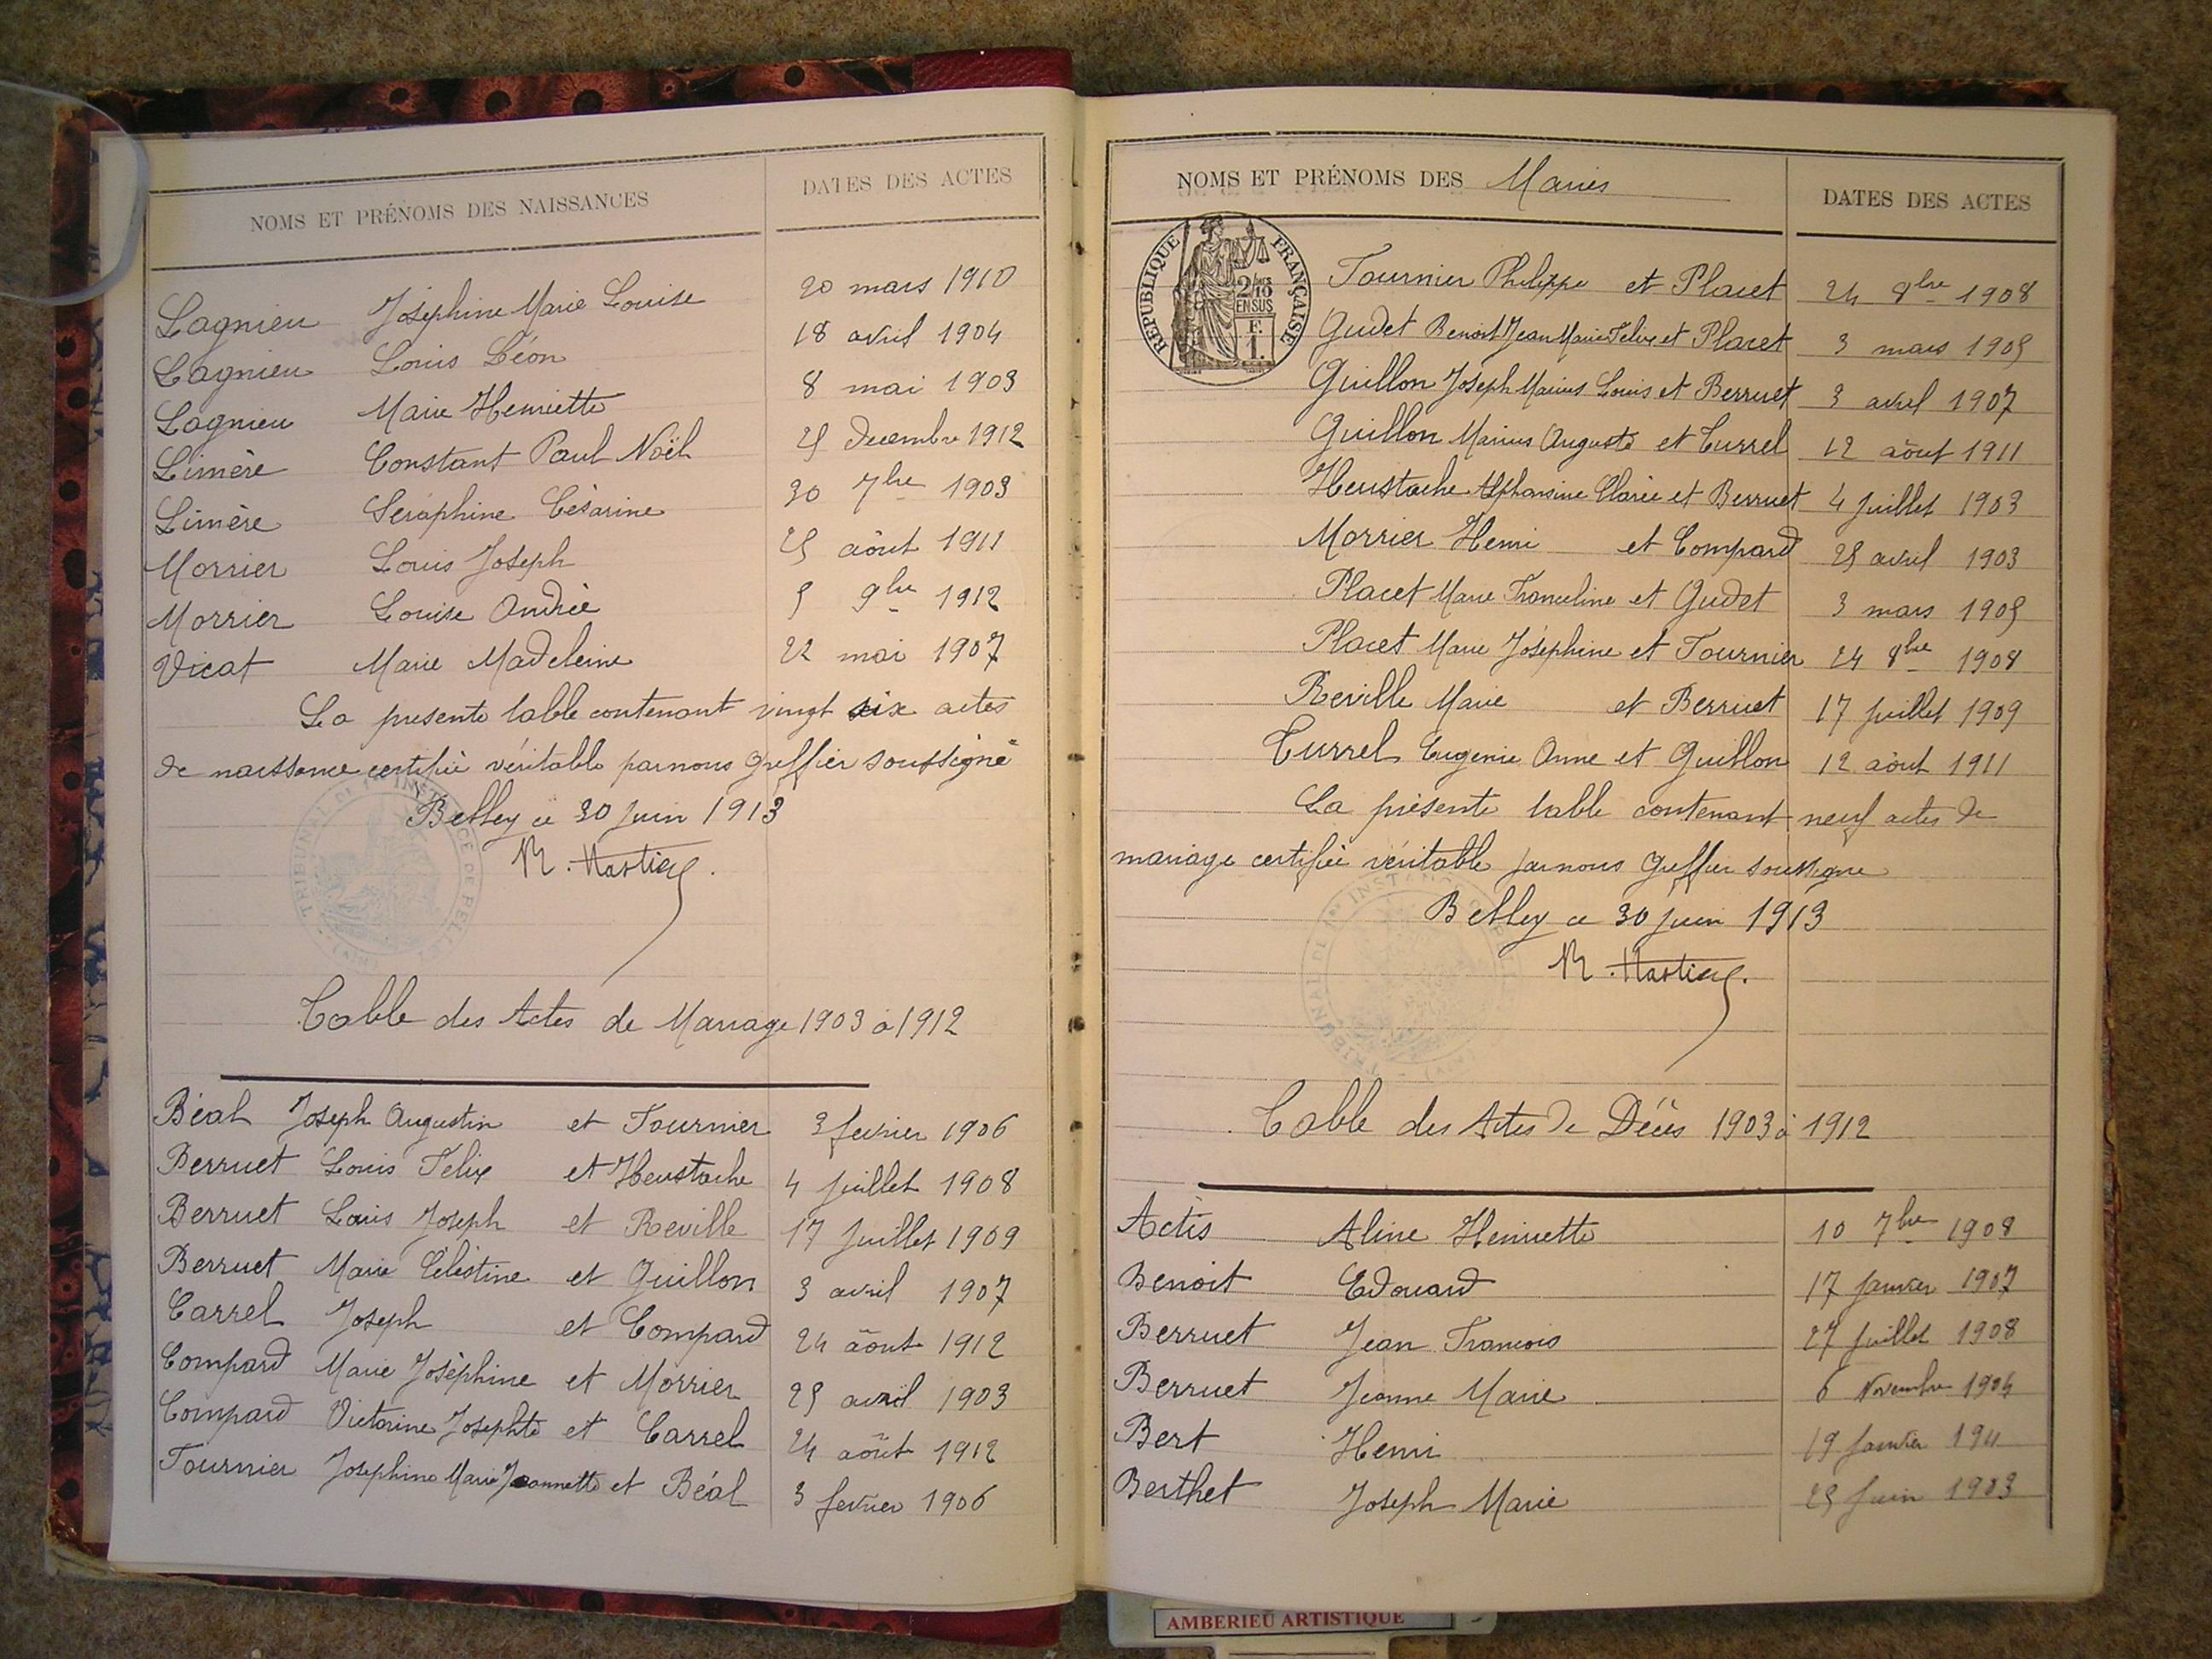 NOMS ET PRÉNOMS DES NAISSANCES DATES DES ACTES
Lagnieu Joséphine Marie Louise 20 mars 1910
Lagnieu Louis Léon 18 avril 1904
Lagnieu Marie Henriette 8 mai 1903
Limère Constant Paul Noël 25 decembre 1912
Limère Seraphine Césarine 30 7bre 1903
Morrier Louis Joseph 25 août 1911
Morrier Louise Andrée 5 9bre 1912
Vicat Marie Madeleine 22 mai 1907
La presente table contenant vingt six actes
de naissance certifiée véritable par nous Greffier soussigné
Belley ce 30 Juin 1913
Table des Actes de Mariage 1903 à 1912
Béal Joseph Augustin et Tournier 3 fevrier 1906
Berruet Louis Felix et Heustache 4 juillet 1908
Berruet Louis Joseph et Reville 17 Juillet 1909
Berruet Marie Célestine et Guillon 3 avril 1907
Carrel Joseph et Compard 24 août 1912
Compard Marie Joséphine et Morrier 25 avril 1903
Compard Victorine Josephte et Carrel 24 août 1912
Tournier Josephine Marie Jeannette et Béal 3 fevrier 1906
NOMS ET PRÉNOMS DES Mariés DATES DES ACTES
RÉPUBLIQUE FRANÇAISE
2/10
EN SUS
F.
1.
Tournier Philippe et Placet 24 8bre 1908
Gudet Benoit Jean Marie Felix et Placet 3 mars 1905
Guillon Joseph Marius Louis et Berruet 3 avril 1907
Guillon Marius Auguste et Turrel 12 août 1911
Heustache Alphonsine Clarie et Berruet 4 Juillet 1903
Morrier Henri et Compard 25 avril 1903
Placet Marie Franceline et Gudet 3 mars 1905
Placet Marie Joséphine et Tournier 24 8bre 1908
Reville Marie et Berruet 17 Juillet 1909
Turrel Eugenie Anne et Guillon 12 août 1911
La présente table contenant neuf actes de
mariage certifiée véritable par nous Greffier soussigné
Belley ce 30 Juin 1913
Table des Actes de Décès 1903 à 1912
Actis Aline Henriette 10 7bre 1908
Benoit Edouard 17 Janvier 1907
Berruet Jean Francois 27 Juillet 1908
Berruet Jeanne Marie 6 Novembre 1904
Bert Henri 19 Janvier 1911
Berthet Joseph Marie 25 Juin 1903
AMBERIEU ARTISTIQUE